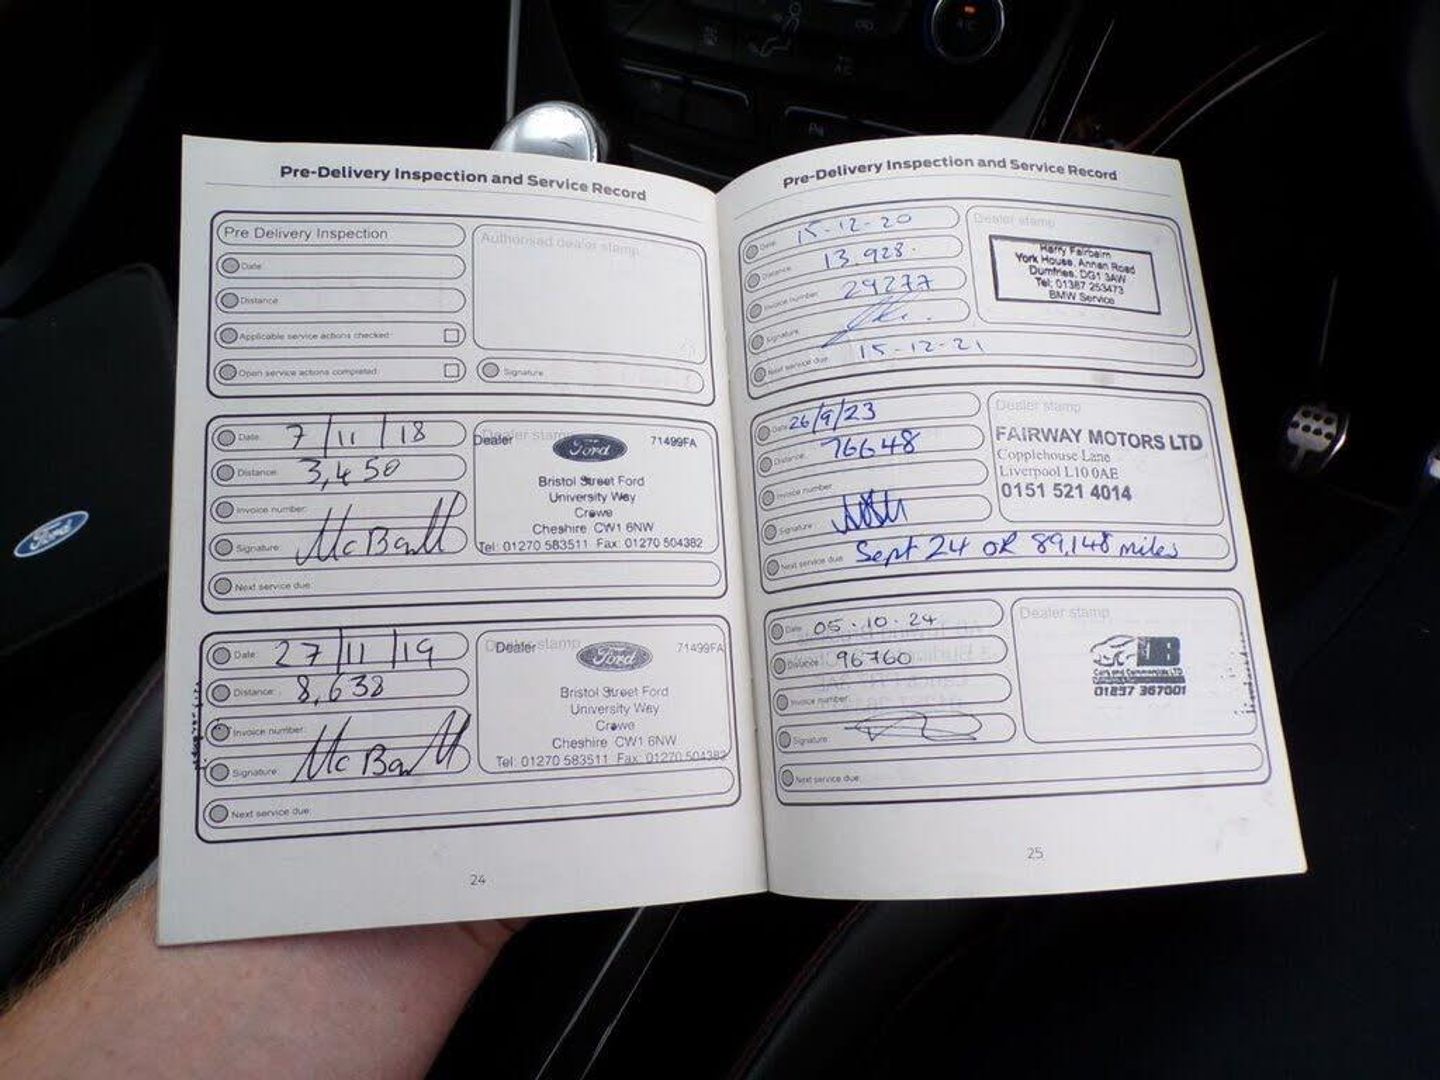 Pre-Delivery Inspection and Service Record
Pre Delivery Inspection
Date
Distance
Applicable service actions checked:
Open service actions completed:
Authorised dealer stamp
Signature
Date: 7/11/18
Distance: 3,450
Invoice number:
Signature: McBall
Next service due:
Dealer stamp
Dealer Ford 71499FA
Bristol Street Ford
University Way
Crewe
Cheshire CW1 6NW
Tel: 01270 583511 Fax: 01270 504382
Date: 27/11/19
Distance: 8,638
Invoice number:
Signature: McBall
Next service due:
Dealer stamp
Dealer Ford 71499FA
Bristol Street Ford
University Way
Crewe
Cheshire CW1 6NW
Tel: 01270 583511 Fax: 01270 504382
24
Pre-Delivery Inspection and Service Record
Date: 15-12-20
Distance: 13,928.
Invoice number: 29277
Signature:
Next service due: 15-12-21
Dealer stamp
Harry Fairbairn
York House, Annan Road
Dumfries. DG1 3AW
Tel: 01387 253473
BMW Service
Date: 26/9/23
Distance: 76648
Invoice number
Signature:
Next service due: Sept 24 OR 89,148 miles
Dealer stamp
FAIRWAY MOTORS LTD
Copplehouse Lane
Liverpool L10 0AE
0151 521 4014
Date: 05.10.24
Distance: 96760
Invoice number:
Signature:
Next service due:
Dealer stamp
JB
01257 367001
25
Ford
A/C